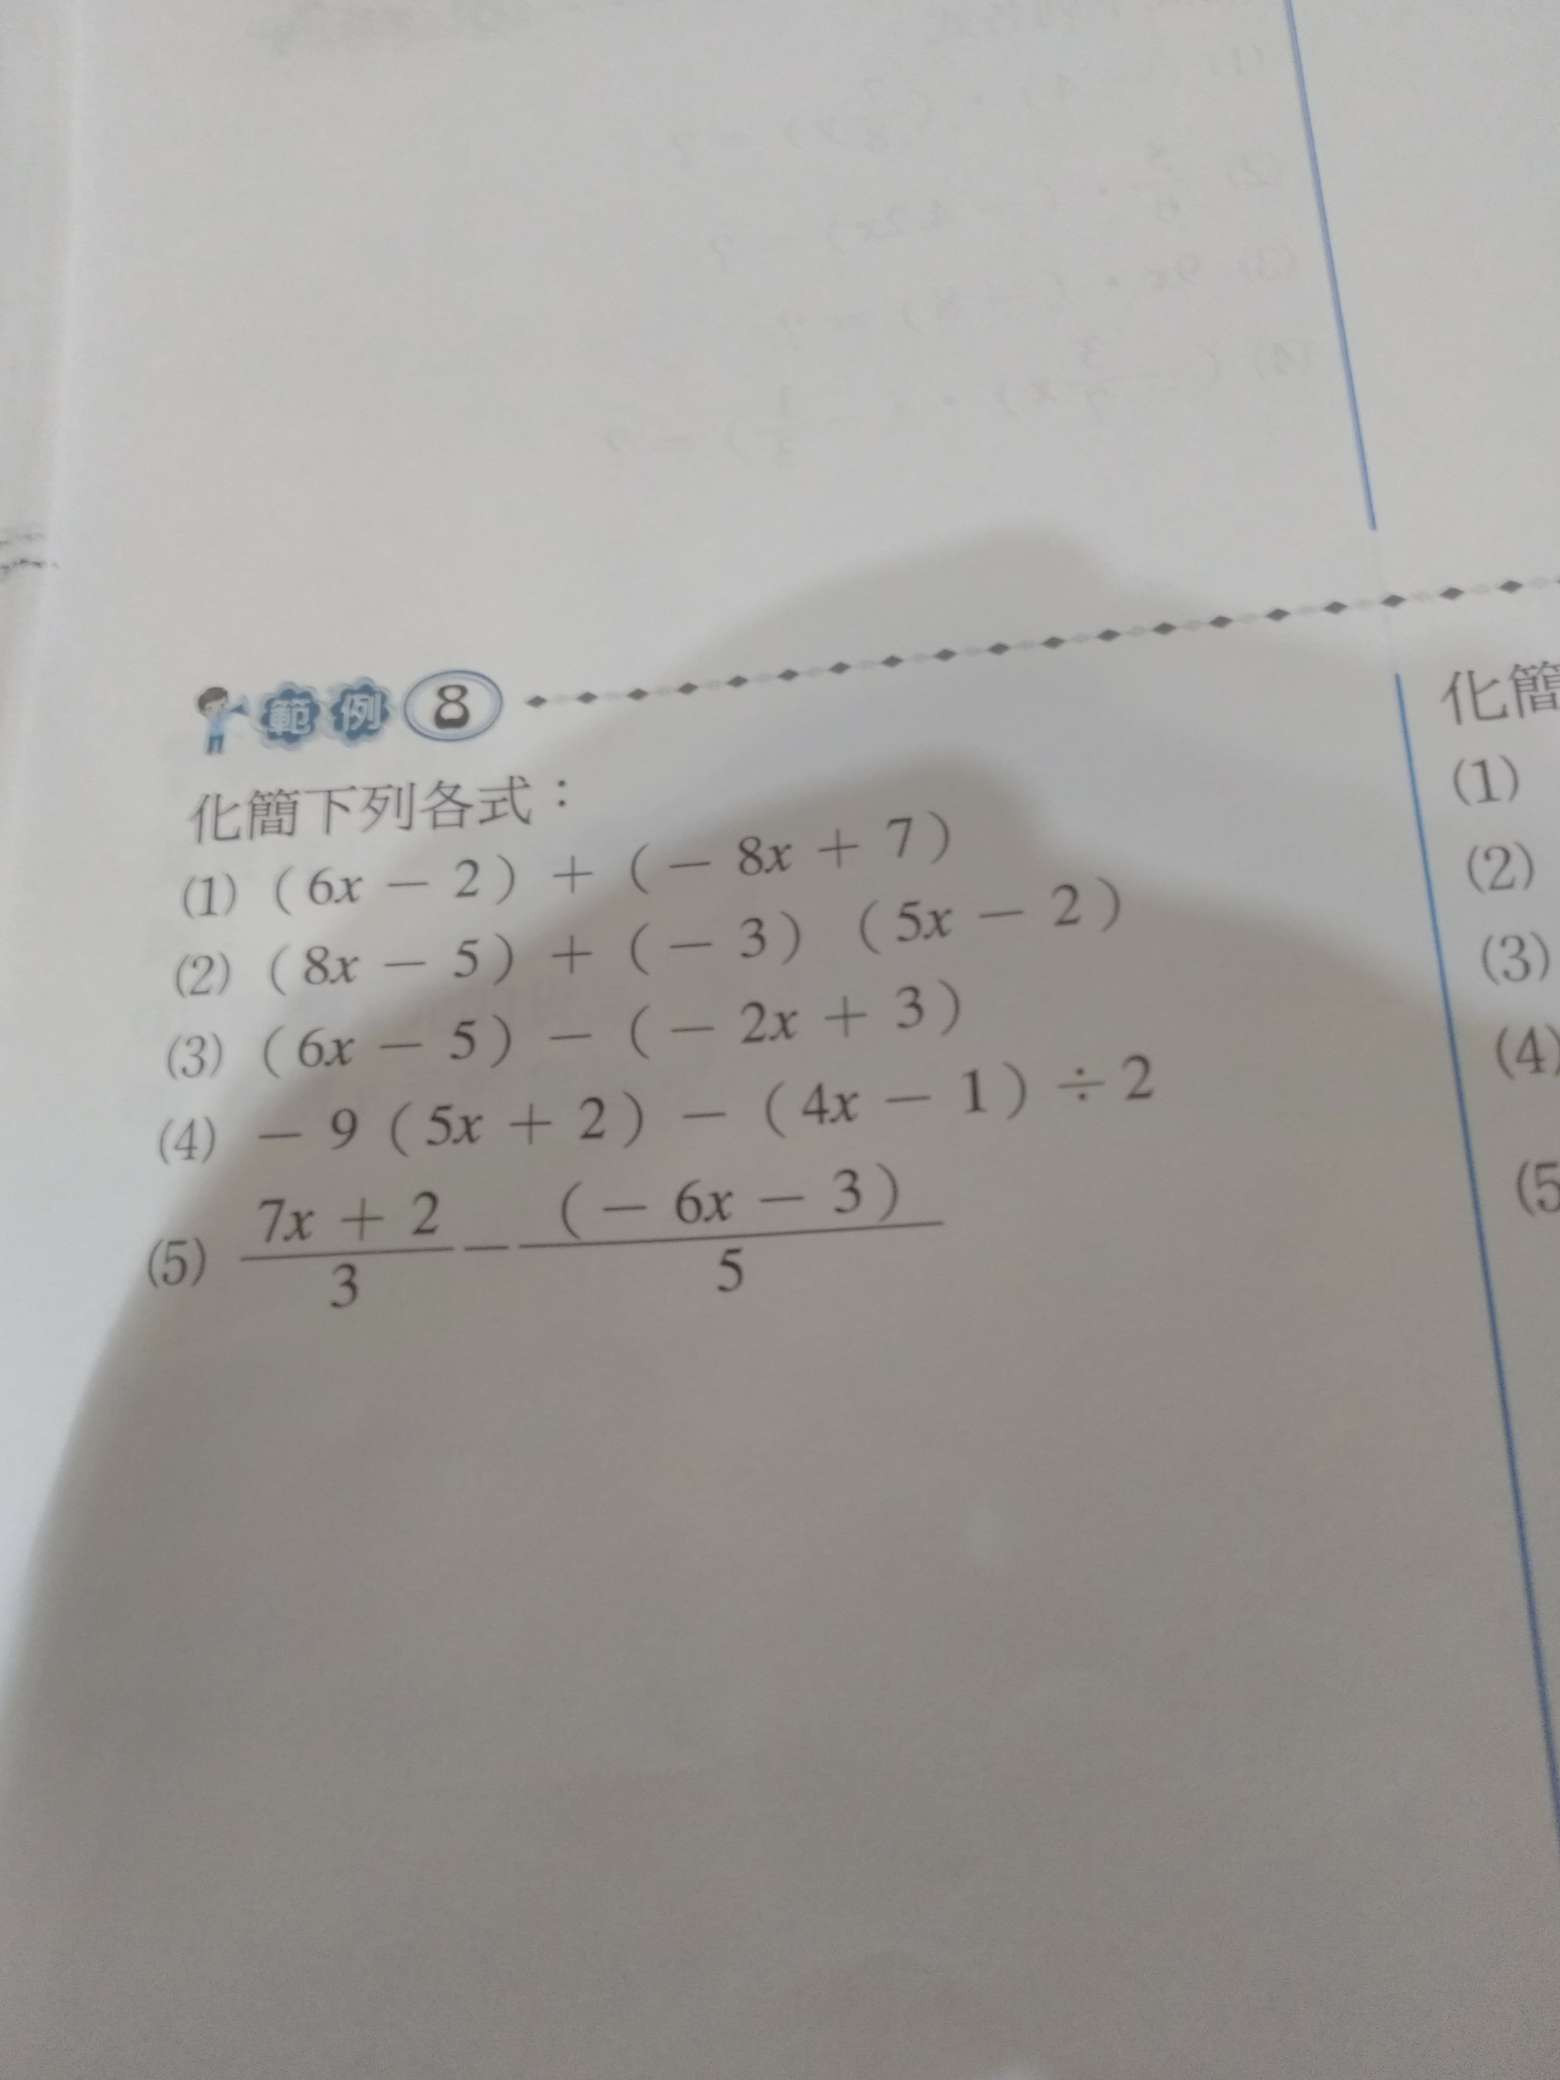 範例 8
化簡下列各式：
(1) ( 6x － 2 ) ＋ ( － 8x ＋ 7 )
(2) ( 8x － 5 ) ＋ ( － 3 ) ( 5x － 2 )
(3) ( 6x － 5 ) － ( － 2x ＋ 3 )
(4) － 9 ( 5x ＋ 2 ) － ( 4x － 1 ) ÷ 2
(5) \frac{7x ＋ 2}{3} － \frac{( － 6x － 3 )}{5}
化簡
(1)
(2)
(3)
(4)
(5